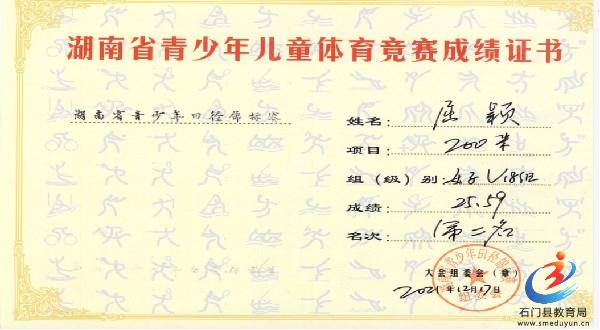 湖南省青少年儿童体育竞赛成绩证书
湖南省青少年田径锦标赛
姓名: 屈颖
项目: 200米
组(级)别: 女子U18组
成绩: 25.59
名次: 第二名
大会组委会(章)
2021年12月17日
石门县教育局
www.smeduyun.cn